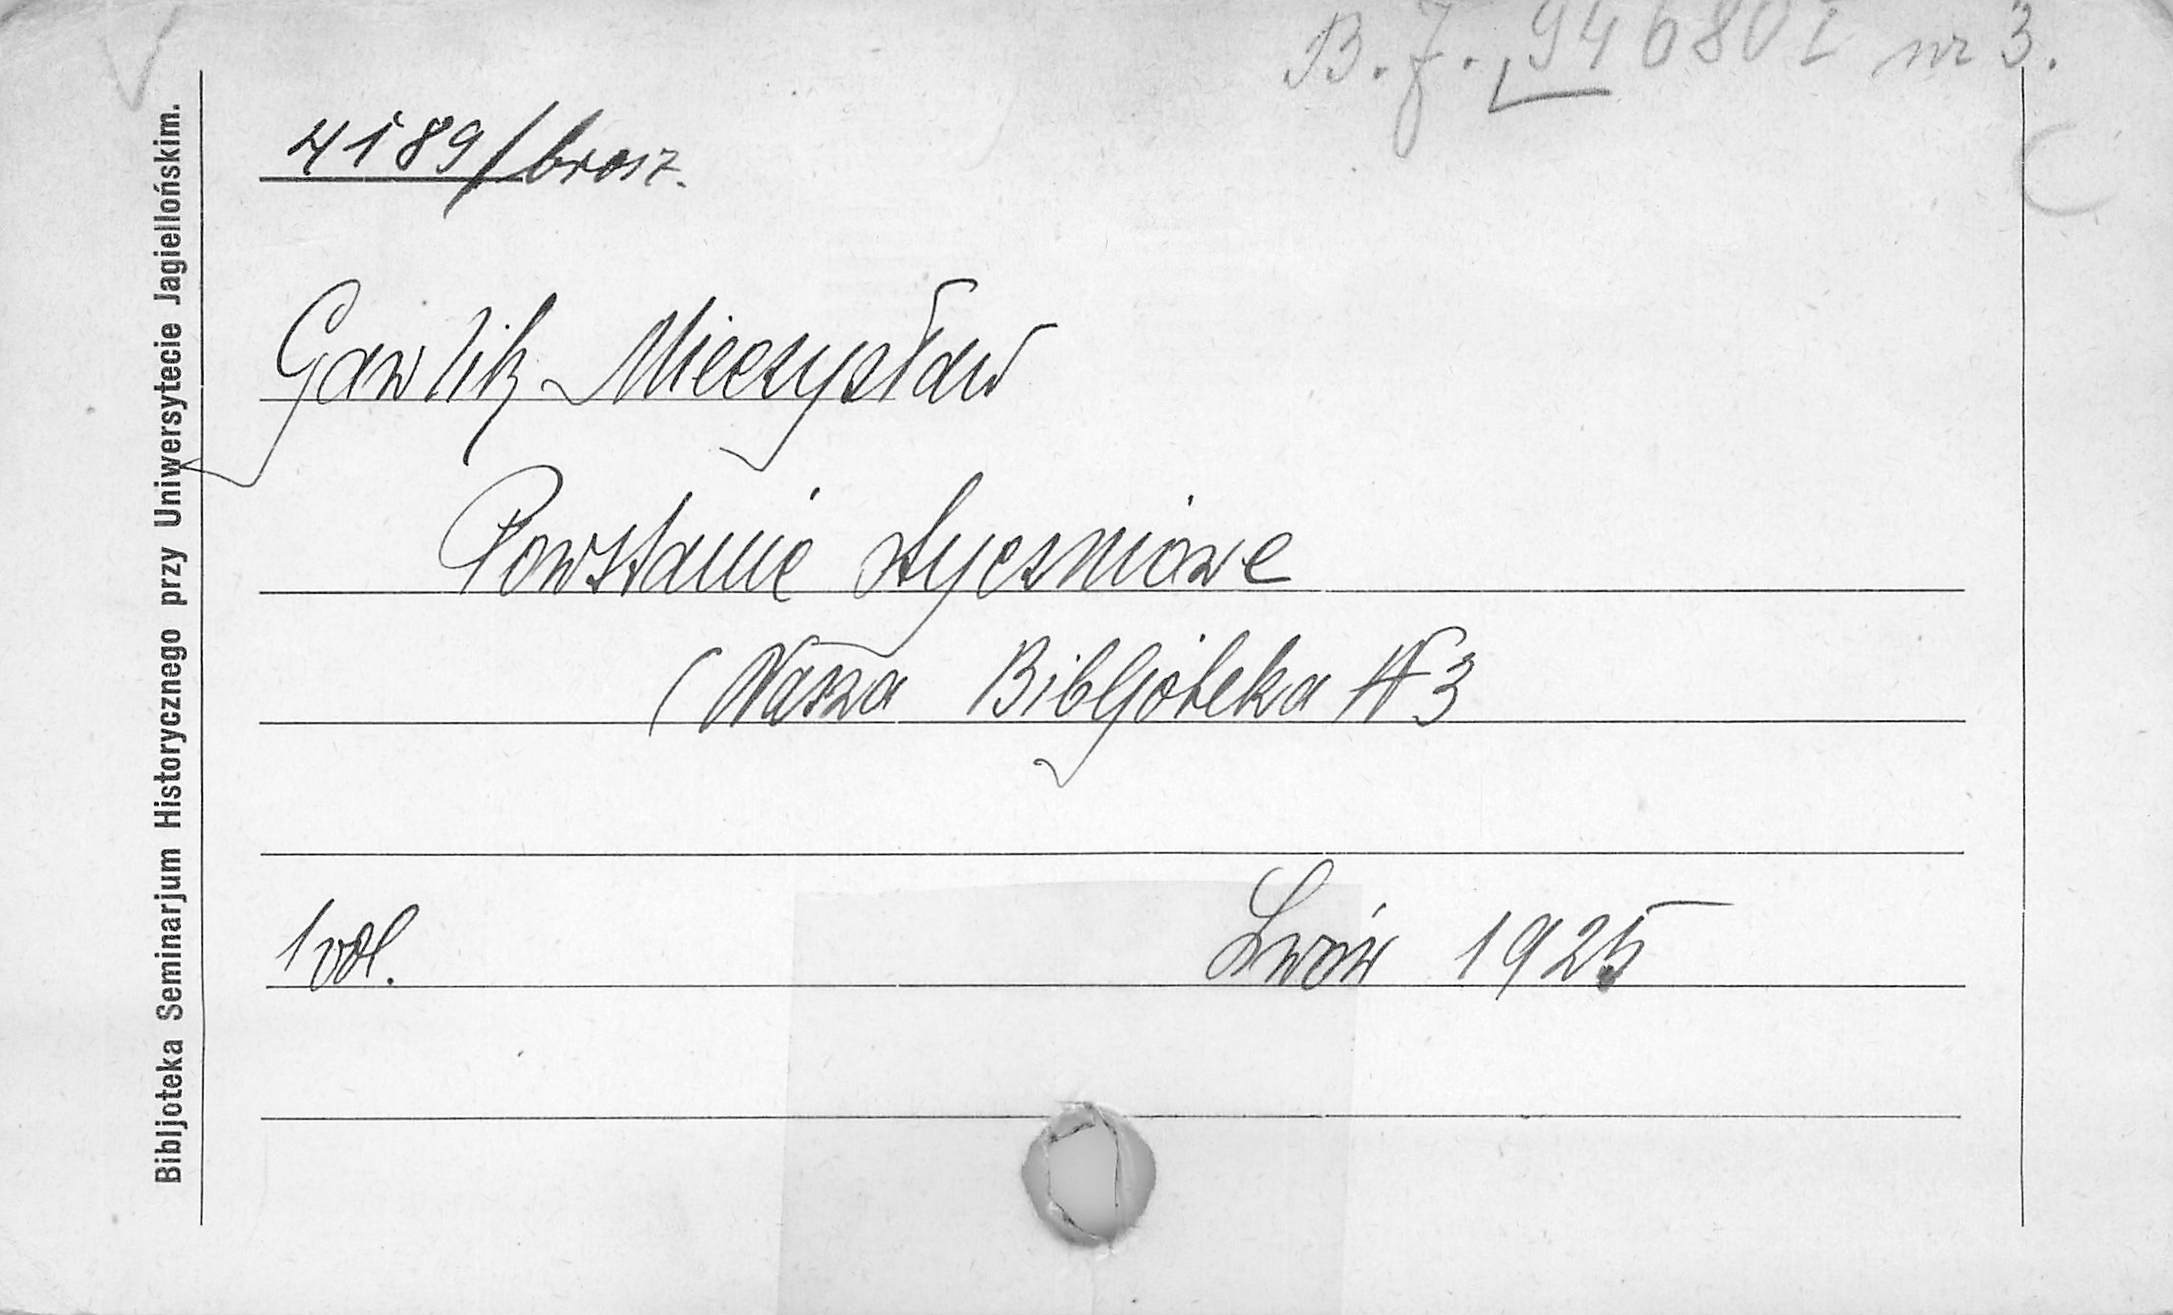 B.J. 946801 nr 3.
4189/brosz.
Gawlik Mieczysław
Powstanie styczniowe
(Nasza Bibljoteka N 3
1 vol. Lwów 1925
Bibljoteka Seminarjum Historycznego przy Uniwersytecie Jagiellońskim.